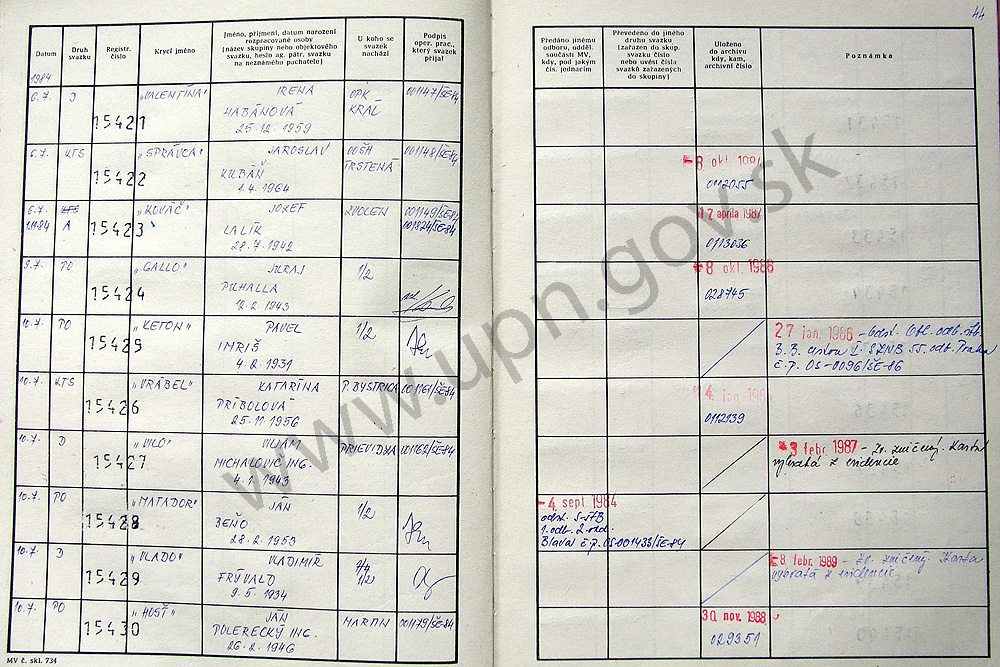 44
Datum
Druh svazku
Registr. číslo
Krycí jméno
Jméno, příjmení, datum narození
rozpracované osoby
(název skupiny nebo objektového
svazku, heslo ag. pátr. svazku
na neznámého pachatele)
U koho se
svazek
nachází
Podpis
oper. prac.,
který svazek
přijal
Předáno jinému
odboru, odděl.
součásti MV,
kdy, pod jakým
čís. jednacím
Převedeno do jiného
druhu svazku
(zařazen do skup.
svazku číslo
nebo uvést čísla
svazků zařazených
do skupiny)
Uloženo
do archivu
kdy, kam,
archivní číslo
Poznámka
1984
6.7. D 15421 "VALENTÍNA" IRENA OPK 001147/ŠE-84
HABÁNOVÁ KRÁĽ
25.12.1959
6.7. KTS 15422 "SPRÁVCA" JAROSLAV OOŠH 001148/ŠE-84 8 okt. 1987
KUBÁŇ TRSTENÁ 0112055
1.4.1964
6.7. KTS 15423 "KOVÁČ" JOZEF ZVOLEN 001149/ŠE-84 7 apríla 1987
A LALÍK 001824/ŠE-84 0113036
28.7.1942
9.7. PO 15424 "GALLO" JURAJ 1/2 8 okt. 1986
PUHALLA 028745
12.2.1943
10.7. PO 15425 "KETON" PAVEL 1/2 27 jan. 1986
IMRIŠ B.B. cestou II. SZNB odb. Praha
4.2.1931 č.p. OS-0096/ŠE-86
10.7. KTS 15426 "VRÁBEL" KATARÍNA P. BYSTRICA 001161/ŠE-84
PRIBOLOVÁ 0112139
25.11.1956
10.7. D 15427 "VILO" VILIAM PRIEVIDZA 001162/ŠE-84 3 febr. 1987 - Zv. zničený. Karta
MICHALOVIČ ING. vybratá z evidencie
4.1.1943
10.7. PO 15428 "MATADOR" JÁN 1/2 4. sept. 1984
BEŇO odst. S-ŠTB
28.2.1953 1. odb. 2. odd.
Blava č.p. OS-001433/ŠE-84
10.7. D 15429 "VLADO" VLADIMÍR 1/2 8. febr. 1989 - Zv. zničený. Karta
FRÝVALD vybratá z evidencie
9.5.1934
10.7. PO 15430 "HOSŤ" JÁN MARTIN 001179/ŠE-84 30. nov. 1988
POLERECKÝ ING. 029351
26.2.1946
MV č. skl. 734
www.upn.gov.sk